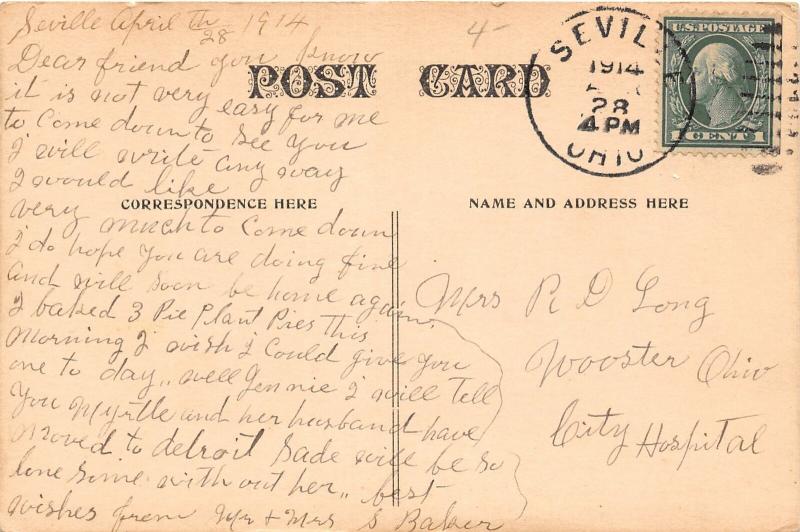 Seville April 28th 1914
4
Dear friend you know
it is not very easy for me
to come down to see you
I will write any way
I would like
very much to come down
I do hope you are doing fine
and will soon be home again.
I baked 3 Pie Plant Pies this
morning I wish I could give you
one to day,, well Jennie I will tell
you Myrtle and her husband have
moved to detroit Sade will be so
lone some with out her,, best
wishes from Mr + Mrs S Baker
POST CARD
CORRESPONDENCE HERE
NAME AND ADDRESS HERE
SEVILLE
1914
28
4 PM
OHIO
U.S. POSTAGE
1 CENT 1
Mrs R D Long
Wooster Ohio
City Hospital